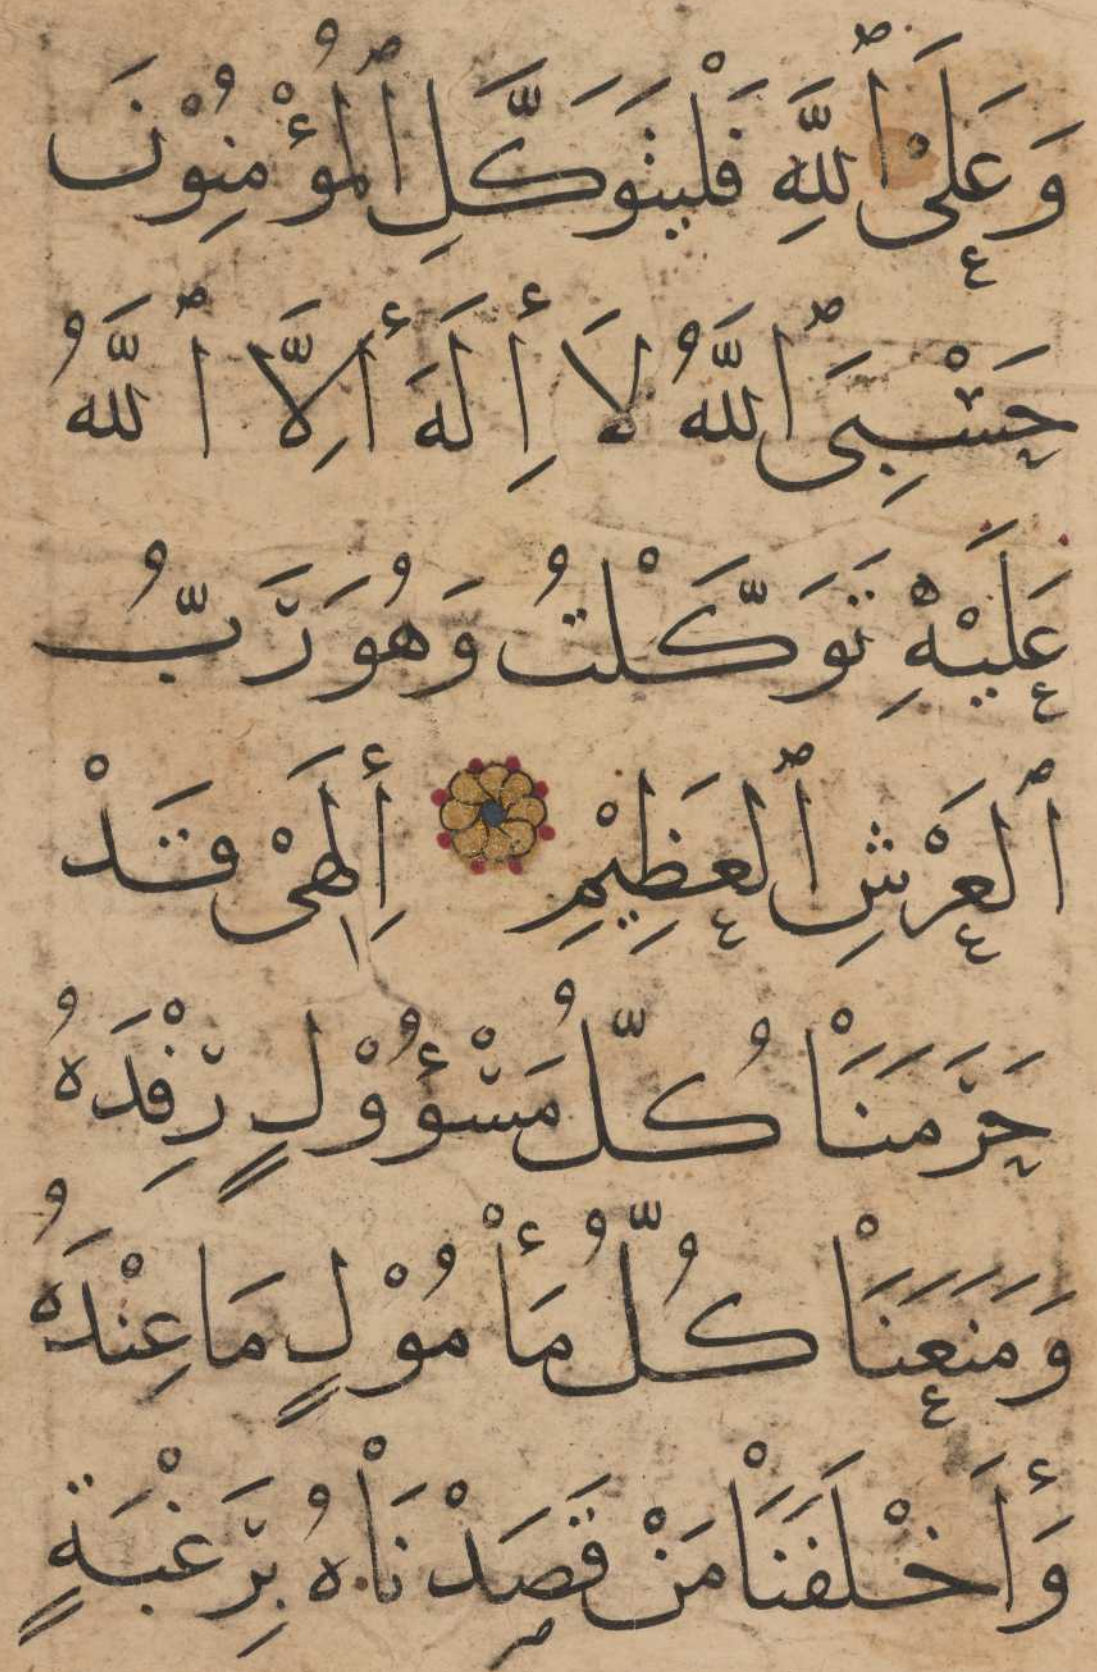 وَعَلَى ٱللَّهِ فَلْيَتَوَكَّلِ ٱلْمُؤْمِنُوْنَ
حَسْبِىَ ٱللَّهُ لَا أِلَهَ أِلَّا ٱللَّهُ
عَلَيْهِ تَوَكَّلْتُ وَهُوَ رَبُّ
ٱلْعَرْشِ ٱلْعَظِيْمِ أِلَهِىْ قَدْ
حَرَّمَنَاْ كُلُّ مَسْؤُوْلٍ رِفْدَهُ
وَمَنَعَنَاْ كُلُّ مَأْمُوْلٍ مَا عِنْدَهُ
وَأَخْلَفَنَاْ مَنْ قَصَدْنَاْهُ بِرَغْبَةٍ